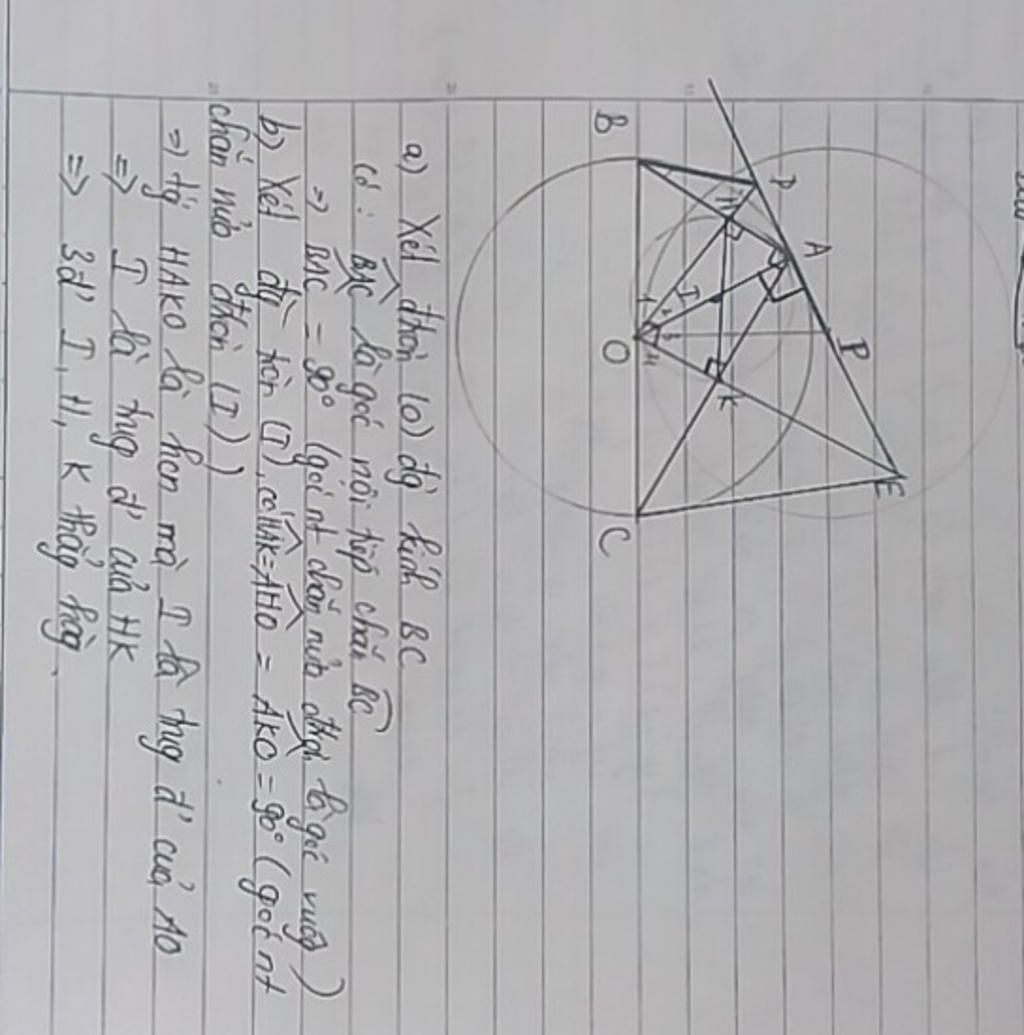 B
D
A
P
E
H
I
1
2
3
4
O
K
C
a) Xét đtròn (O) đg kính BC
Có: BAC là góc nội tiếp chắn BC
=> BAC = 90° (góc nt chắn nửa đtròn là góc vuông)
b) Xét đg tròn (I), có HAK = AHO = AKO = 90° (góc nt
chắn nửa đtròn (I))
=> tg HAKO là hcn mà I là trug đ' của AO
=> I là trug đ' của HK
=> 3đ' I, H, K thẳg hàg.